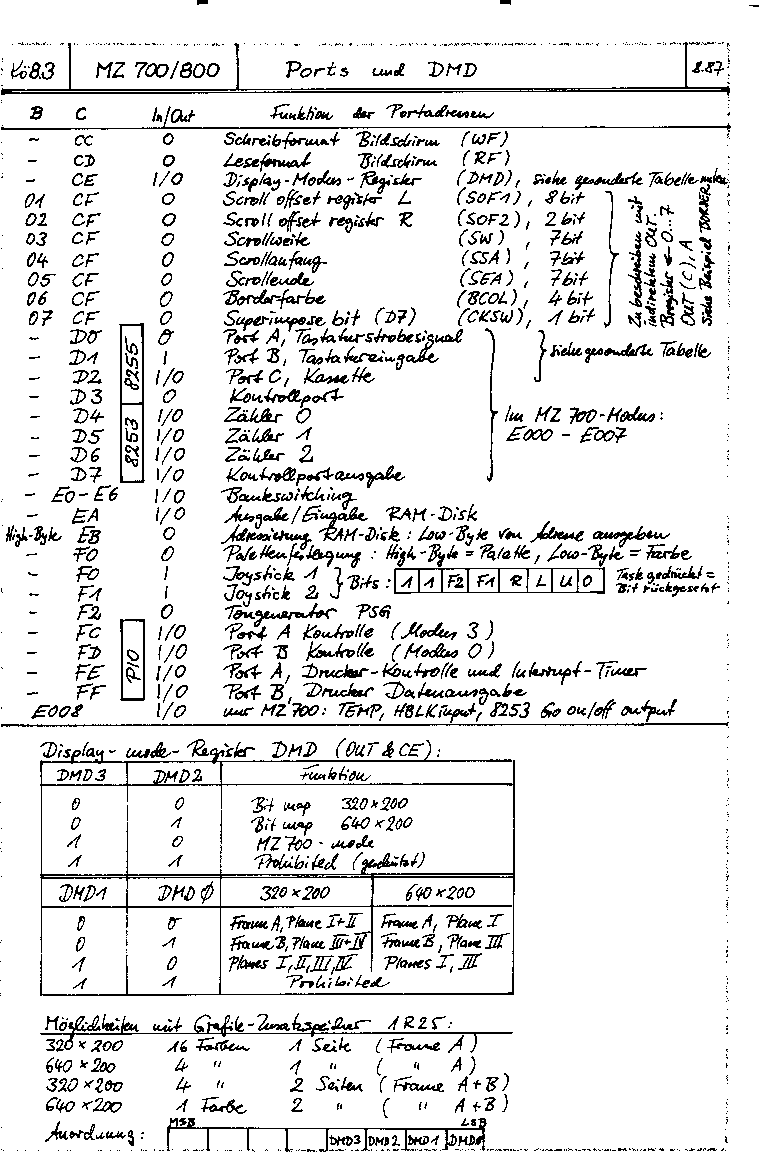 Kö83 MZ 700/800 Ports und DMD 8.87
B C In/Out Funktion der Portadressen
- CC O Schreibformat Bildschirm (WF)
- CD O Leseformat Bildschirm (RF)
- CE I/O Display-Modus-Register (DMD), siehe gesonderte Tabelle unten
01 CF O Scroll offset register L (SOF1), 8 bit
02 CF O Scroll offset register R (SOF2), 2 bit
03 CF O Scrollweite (SW), 7bit
04 CF O Scrollanfang (SSA), 7bit
05 CF O Scrollende (SEA), 7bit
06 CF O Borderfarbe (BCOL), 4 bit
07 CF O Superimpose bit (D7) (CKSW), 1 bit
Zu beschreiben mit
indirektem OUT.
Bregister ← 0...7
OUT (C), A
Siehe Beispiel BORDER
- D0 O Port A, Tastaturstrobesignal
- D1 I Port B, Tastatureingabe
- D2 I/O Port C, Kassette
- D3 O Kontrollport
8255
} siehe gesonderte Tabelle
- D4 I/O Zähler 0
- D5 I/O Zähler 1
- D6 I/O Zähler 2
- D7 I/O Kontrollportausgabe
8253
Im MZ 700-Modus:
E000 - E007
- E0-E6 I/O Bankswitching
- EA I/O Ausgabe/Eingabe RAM-Disk
High-Byte EB O Adressierung RAM-Disk: Low-Byte von Adresse ausgeben
- F0 O Palettenfestlegung: High-Byte = Palette, Low-Byte = Farbe
- F0 I Joystick 1
- F1 I Joystick 2
} Bits: 1 1 F2 F1 R L U O
Taste gedrückt =
Bit rückgesetzt
- F2 O Tongenerator PSG
- FC I/O Port A Kontrolle (Modus 3)
- FD I/O Port B Kontrolle (Modus 0)
- FE I/O Port A, Drucker-Kontrolle und Interrupt-Timer
- FF I/O Port B, Drucker Datenausgabe
PIO
E008 I/O nur MZ 700: TEMP, HBLK input, 8253 Go on/off output
Display-mode-Register DMD (OUT &CE):
DMD3 DMD2 Funktion
0 0 Bit map 320×200
0 1 Bit map 640×200
1 0 MZ 700-mode
1 1 Prohibited
DMD1 DMD0 320×200 640×200
0 0 Frame A, Plane I+II Frame A, Plane I
0 1 Frame B, Plane III+IV Frame B, Plane III
1 0 Planes I, II, III, IV Planes I, III
1 1 Prohibited
Möglichkeiten mit Grafik-Zusatzspeicher 1R25:
320×200 16 Farben 1 Seite (Frame A)
640×200 4 " 1 " ( " A)
320×200 4 " 2 Seiten (Frame A+B)
640×200 1 Farbe 2 " ( " A+B)
MSB LSB
Anordnung: DMD3 DMD2 DMD1 DMD0